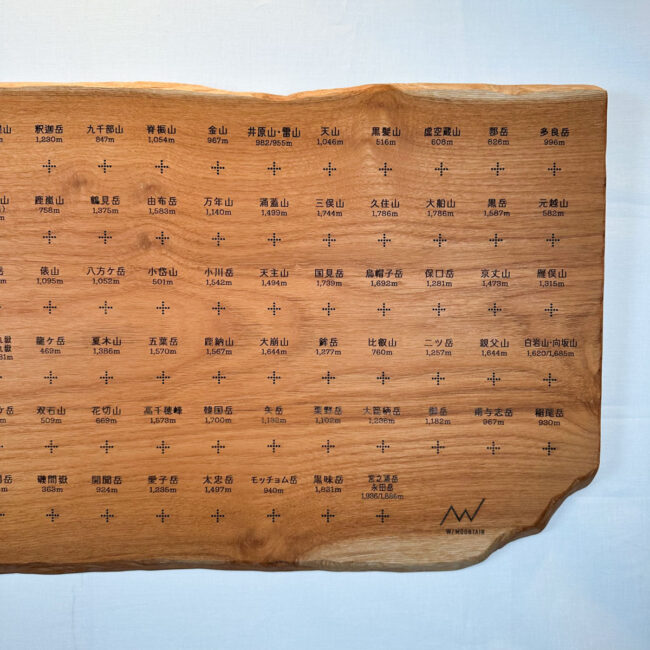 山 釈迦岳 九千部山 脊振山 金山 井原山・雷山 天山 黒髪山 虚空蔵山 郡岳 多良岳
1,230m 847m 1,054m 967m 982/955m 1,046m 516m 608m 826m 996m
山 鹿嵐山 鶴見岳 由布岳 万年山 涌蓋山 三俣山 久住山 大船山 黒岳 元越山
758m 1,375m 1,583m 1,140m 1,499m 1,744m 1,786m 1,786m 1,587m 582m
岳 俵山 八方ケ岳 小岱山 小川岳 天主山 国見岳 烏帽子岳 保口岳 京丈山 雁俣山
1,095m 1,052m 501m 1,542m 1,494m 1,739m 1,692m 1,281m 1,473m 1,315m
龍ケ岳 夏木山 五葉岳 鹿納山 大崩山 鉾岳 比叡山 二ツ岳 親父山 白岩山・向坂山
469m 1,386m 1,570m 1,567m 1,644m 1,277m 760m 1,257m 1,644m 1,620/1,685m
ケ岳 双石山 花切山 高千穂峰 韓国岳 矢岳 栗野岳 大箆柄岳 御岳 甫与志岳 稲尾岳
509m 669m 1,573m 1,700m 1,102m 1,236m 1,182m 967m 930m
岳 磯間嶽 開聞岳 愛子岳 太忠岳 モッチョム岳 黒味岳 宮之浦岳
永田岳
363m 924m 1,235m 1,497m 940m 1,831m 1,936/1,886m
W/MOUNTAIN